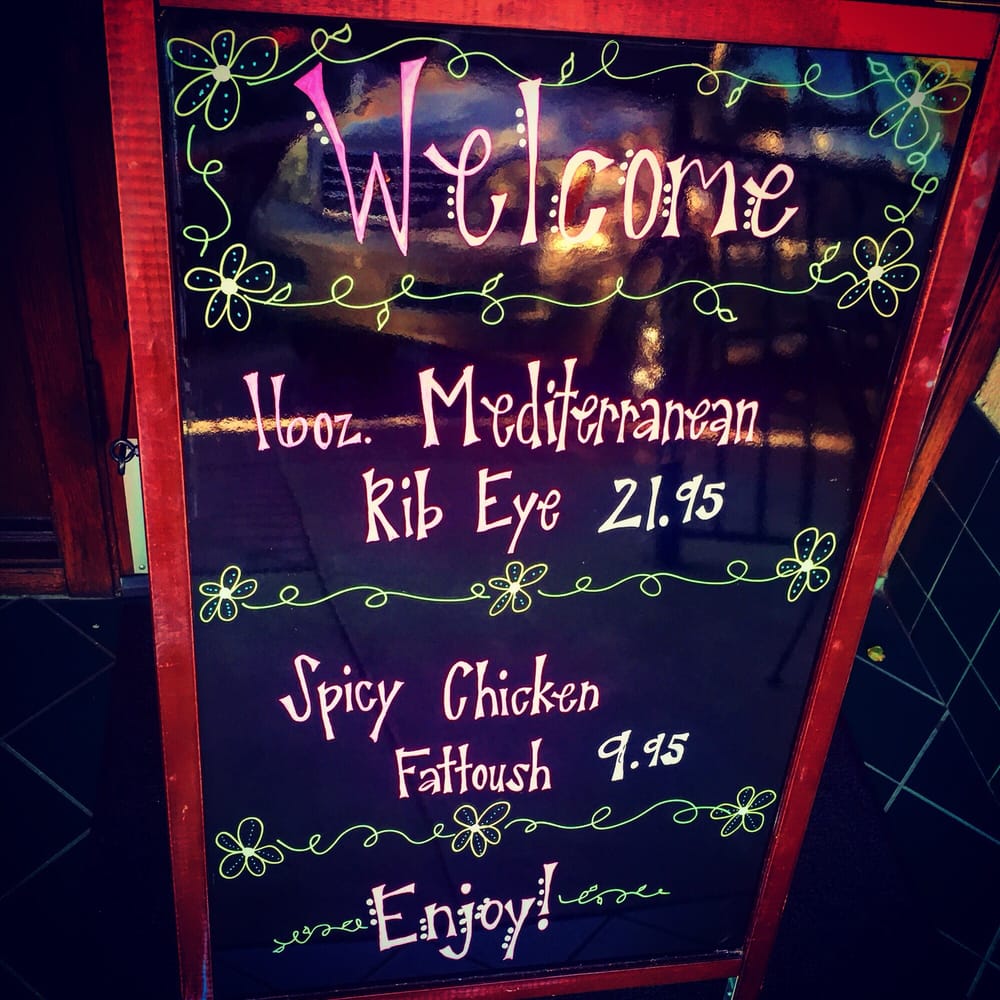 Welcome
16oz. Mediterranean
Rib Eye 21.95
Spicy Chicken
Fattoush 9.95
Enjoy!